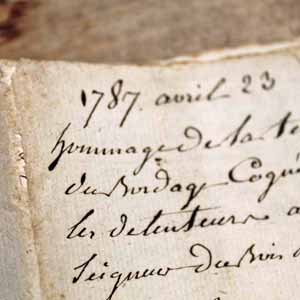 1787 avril 23
hommage de la te
du Bordage Coqué
les detenteurs a
Seigneur du Bois d